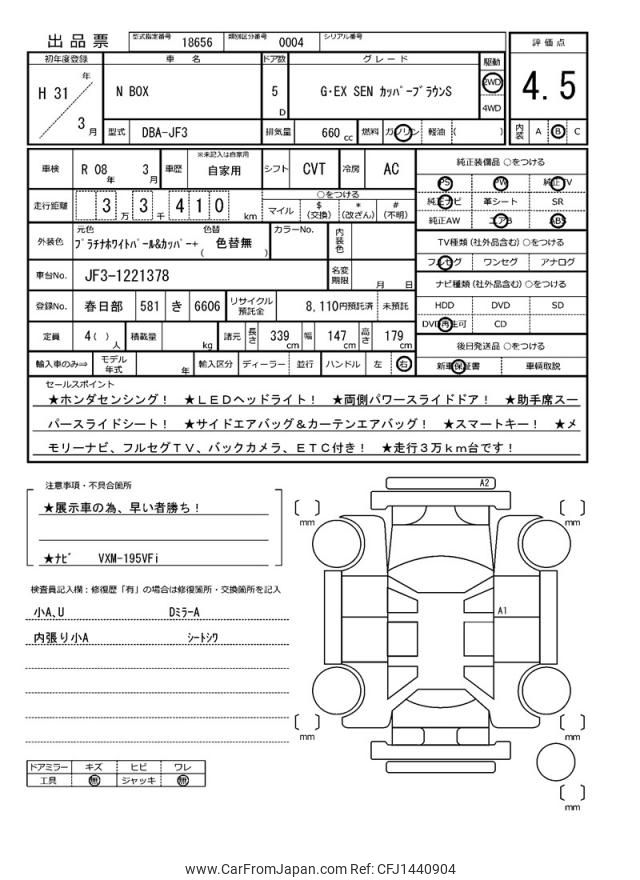 出品票 型式指定番号 18656 類別区分番号 0004 シリアル番号
評価点
4.5
内装 A B C
初年度登録 車名 ドア数 グレード 駆動
H 31 年 3 月
N BOX 5 D G・EX SEN カッパーブラウンS 2WD
4WD
型式 DBA-JF3 排気量 660 cc 燃料 ガソリン 軽油 ( )
車検 R 08 年 3 月 車歴 ※未記入は自家用 自家用 シフト CVT 冷房 AC
走行距離 3 3 万 3 千 4 1 0 km
○をつける
マイル $(交換) *(改ざん) #(不明)
外装色 元色 プラチナホワイトパール&カッパー+ 色替 ( 色替無 ) カラーNo. 内装色
車台No. JF3-1221378 名変期限 月 日
登録No. 春日部 581 き 6606 リサイクル預託金 8,110円預託済 未預託
定員 4( )人 積載量 kg 諸元 長さ 339 cm 幅 147 cm 高さ 179 cm
輸入車のみ⇒ モデル年式 年 輸入区分 ディーラー 並行 ハンドル 左 右
純正装備品 ○をつける
PS PW 純正TV
純正ナビ 革シート SR
純正AW エアB ABS
TV種類(社外品含む) ○をつける
フルセグ ワンセグ アナログ
ナビ種類(社外品含む) ○をつける
HDD DVD SD
DVD再生可 CD
後日発送品 ○をつける
新車保証書 車輌取説
セールスポイント
★ホンダセンシング! ★LEDヘッドライト! ★両側パワースライドドア! ★助手席スー
パースライドシート! ★サイドエアバッグ&カーテンエアバッグ! ★スマートキー! ★メ
モリーナビ、フルセグTV、バックカメラ、ETC付き! ★走行3万km台です!
注意事項・不具合箇所
★展示車の為、早い者勝ち!
★ナビ VXM-195VFi
検査員記入欄:修復歴「有」の場合は修復箇所・交換箇所を記入
小A、U Dミラ-A
内張り小A シートシワ
ドアミラー キズ ヒビ ワレ
工具 無 ジャッキ 無
A2
mm
mm
A1
mm
mm
mm
www.CarFromJapan.com Ref: CFJ1440904